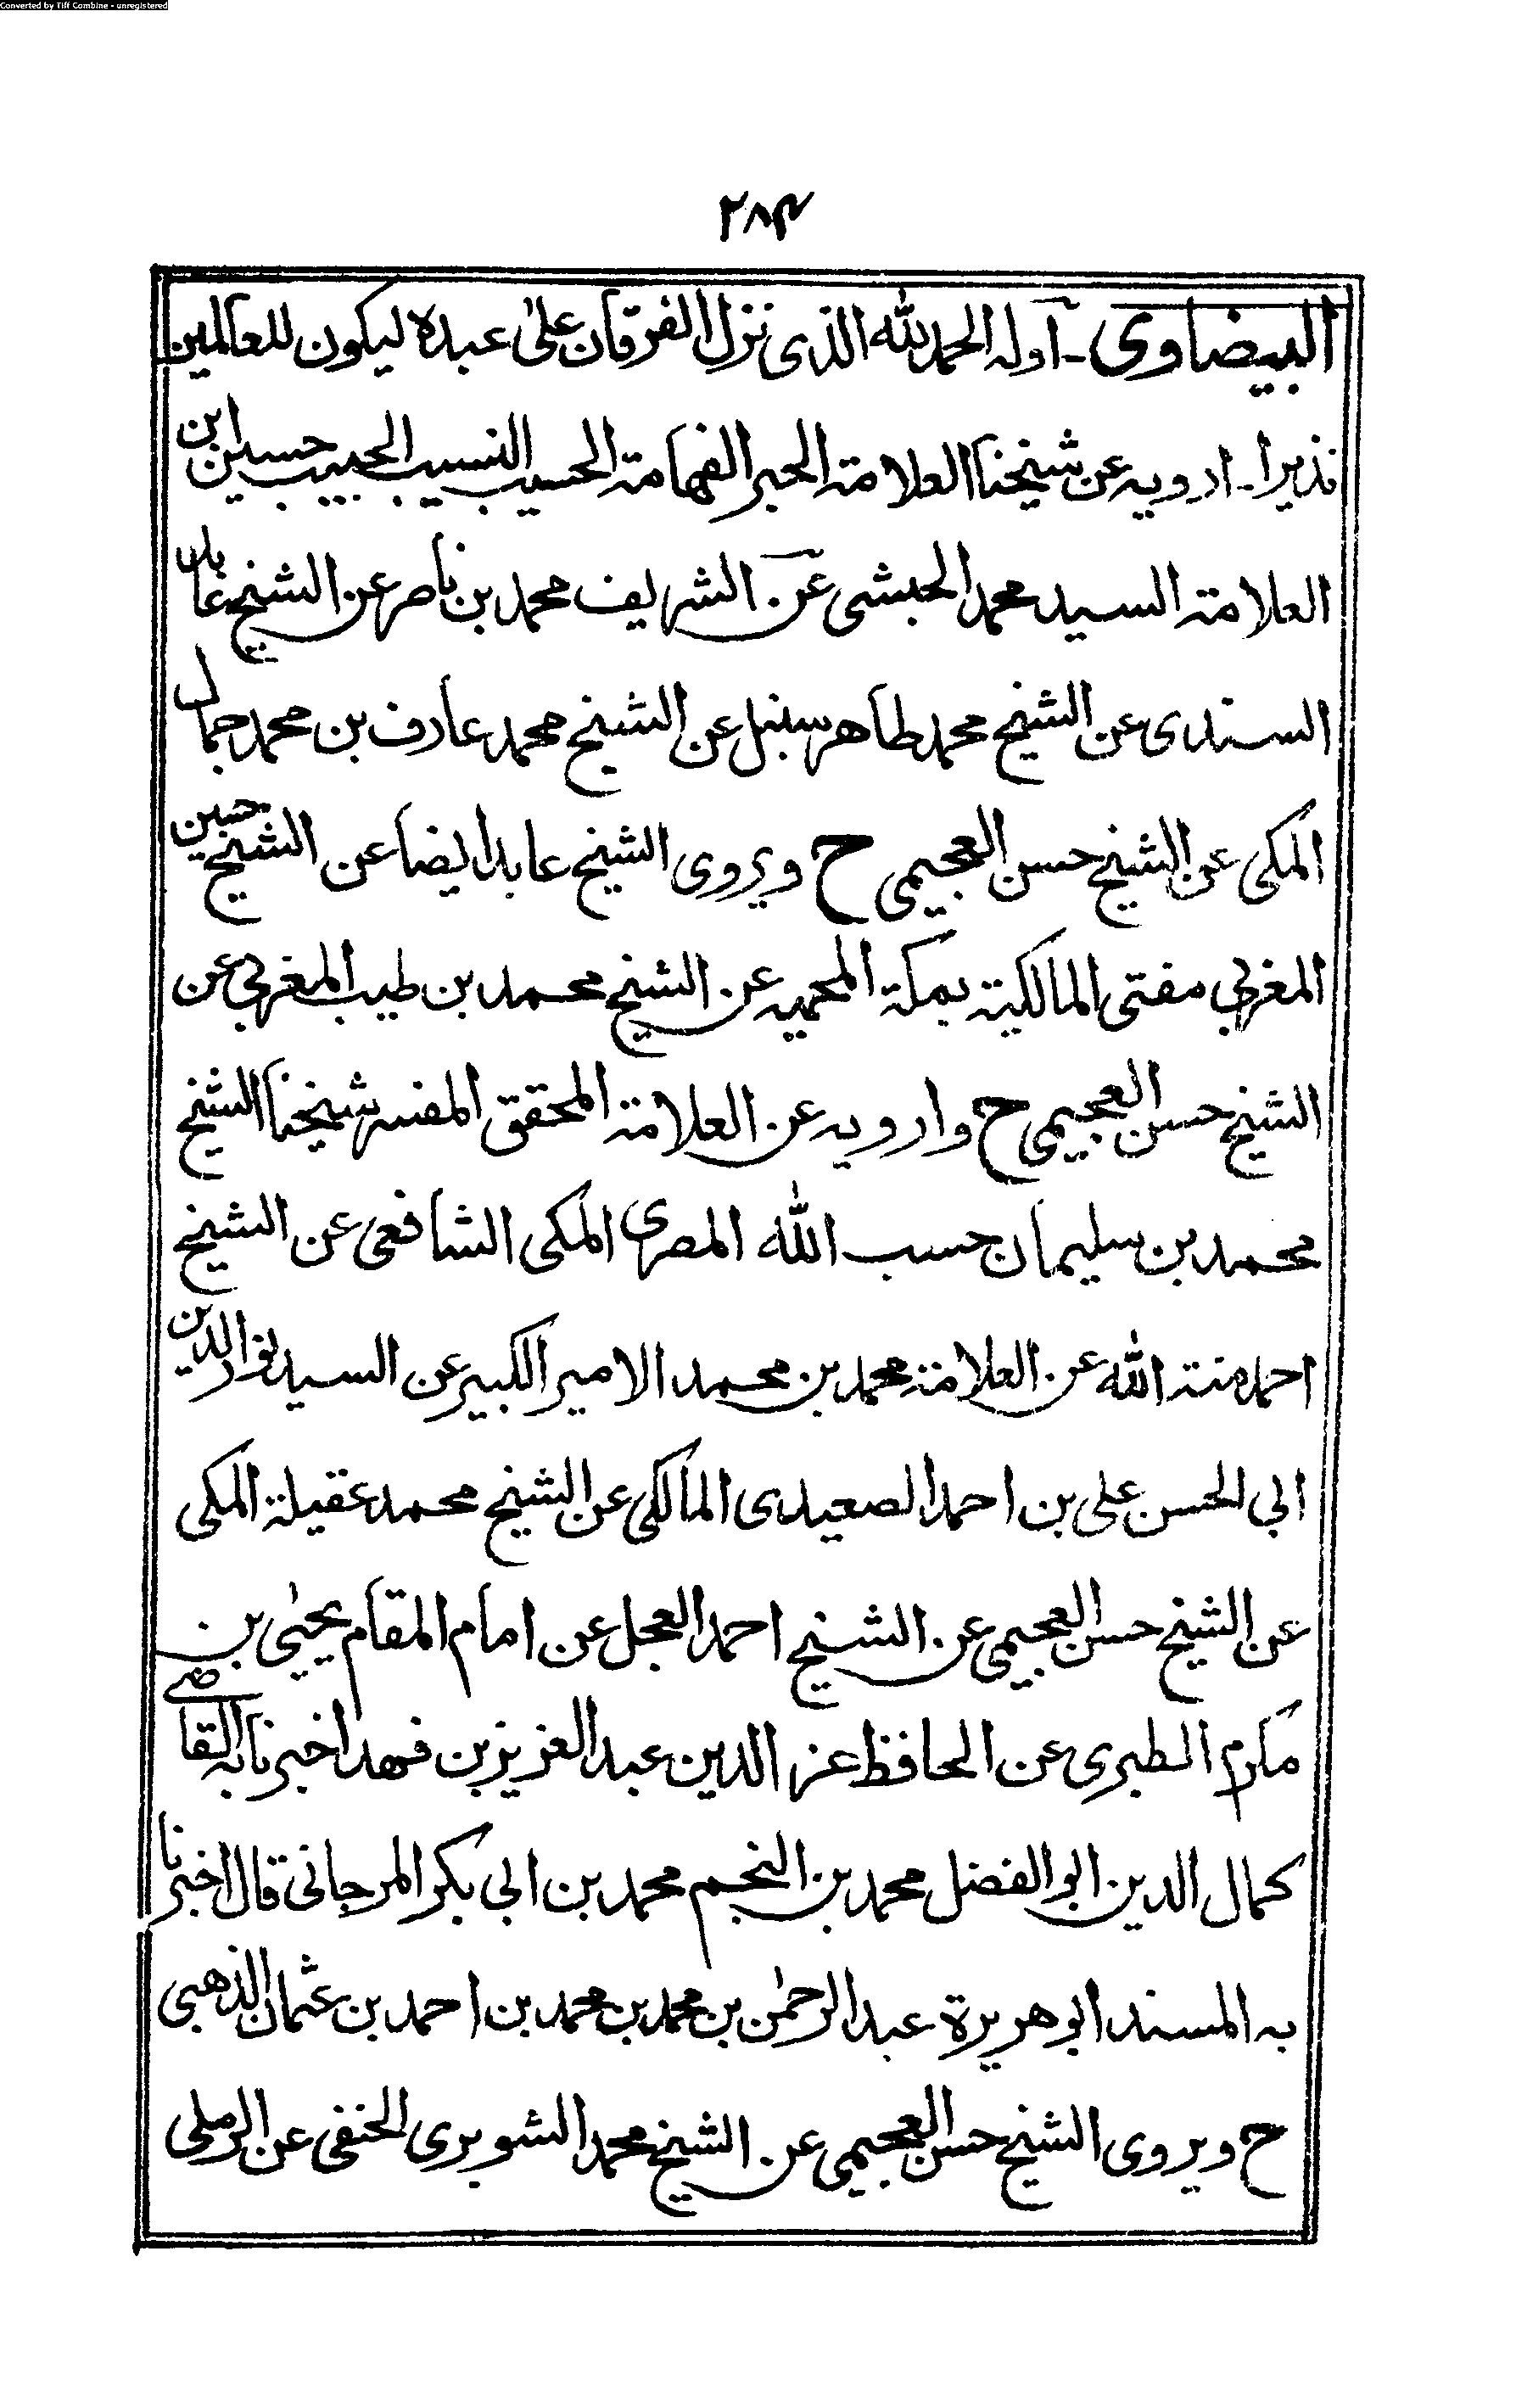 Converted by Tiff Combine - unregistered
٢٨٤
البيضاوى - اوله الحمد لله الذى نزل الفرقان على عبده ليكون للعالمين
نذيرا - ارويه عن شيخنا العلامة الحبر الفهامة الحسيب النسيب الحبيب حسين ابن
العلامة السيد محمد الحبشى عن الشريف محمد بن ناصر عن الشيخ عابد
السندى عن الشيخ محمد طاهر سنبل عن الشيخ محمد عارف بن محمد جمال
المكى عن الشيخ حسن العجيمى ح ويروى الشيخ عابد ايضا عن الشيخ حسين
المغربي مفتى المالكية بمكة المحميه عن الشيخ محمد بن طيب المغربي عن
الشيخ حسن العجيمى ح وارويه عن العلامة المحقق المفسر شيخنا الشيخ
محمد بن سليمان حسب الله المصرى المكى الشافعى عن الشيخ
احمد منة الله عن العلامة محمد بن محمد الامير الكبير عن السيد نور الدين
ابي الحسن على بن احمد الصعيدى المالكى عن الشيخ محمد عقيلة المكى
عن الشيخ حسن العجيمى عن الشيخ احمد العجل عن امام المقام يحيى بن
مكرم الطبرى عن الحافظ عز الدين عبد العزيز بن فهد اخبرنا به القاضى
كمال الدين ابو الفضل محمد بن النجم محمد بن ابي بكر المرجانى قال اخبرنا
به المسند ابو هريرة عبد الرحمن بن محمد بن محمد بن احمد بن عثمان الذهبى
ح ويروى الشيخ حسن العجيمى عن الشيخ محمد الشوبرى الحنفى عن الرملى